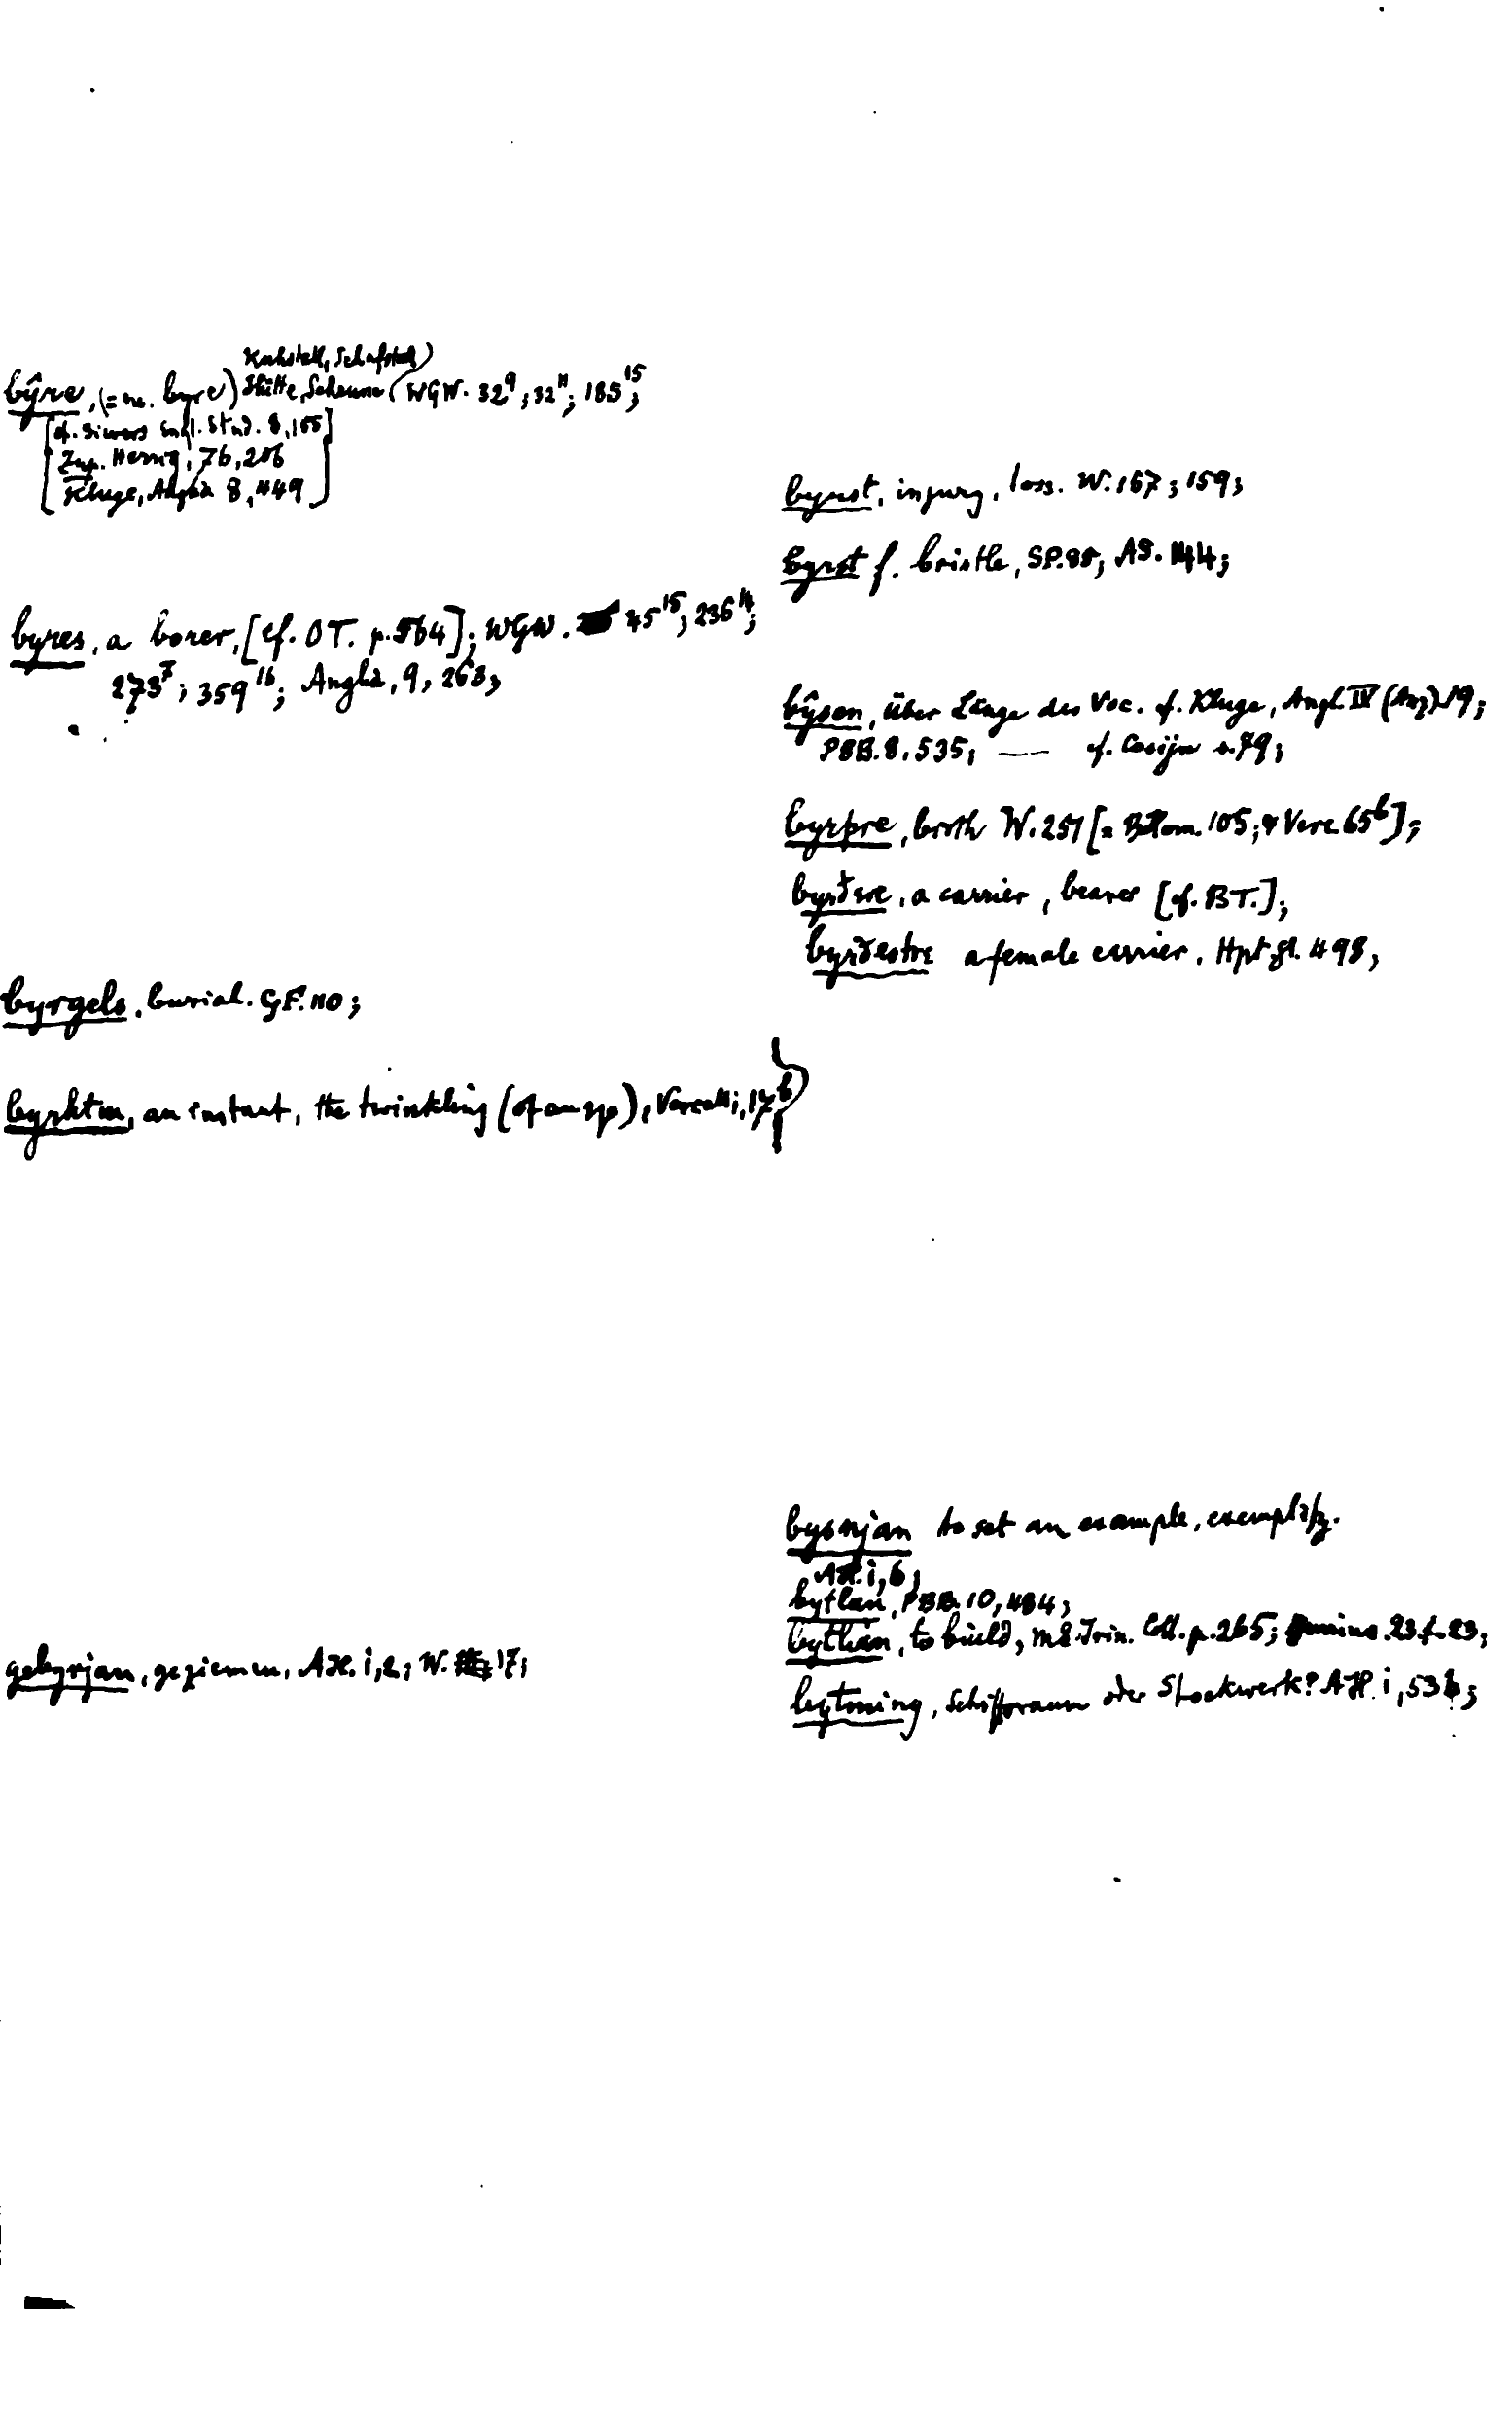 Kuhstall, Schafstall)
bŷre, (= ne. byre) Hütte, Scheune (WGW. 32⁹; 32¹¹; 185¹⁵;
[cf. Sievers Engl. Stud. 8, 155]
Zup. Herrig, 76, 206
Kluge, Anglia 8, 449]
byres, a borer, [cf. OT. p. 564]; WGW. 45¹⁵; 236¹⁴;
273⁷; 359¹⁶; Anglia, 9, 263;
byrgels, burial. GF. 110;
byrhtm, an instant, the twinkling (of an eye), Vercelli, 17ᵇ)
gebyrjan, geziemen, AH. i, 2; W. 17;
byrst, injury, loss. W. 167; 159;
byrst f. bristle, SP. 95; AS. 144;
bŷsen, über Länge des Voc. cf. Kluge, Angl. IV (Anz) 19;
PBB. 8, 535; — cf. Cosijn s. 79;
byrþre, broth W. 251 [= BHom. 105; & Verc. 65ᵇ];
byrðere, a carrier, bearer [cf. BT.];
byrðestre a female carrier, Hpt. gl. 498;
bysnjan to set an example, exemplify.
AH. i, 6;
bytlan, PBB. 10, 484;
bytlian, to build, MS. Trin. Coll. p. 265; Junius. 23 f. 23;
bytming, Schiffsraum oder Stockwerk? AH. i, 536;